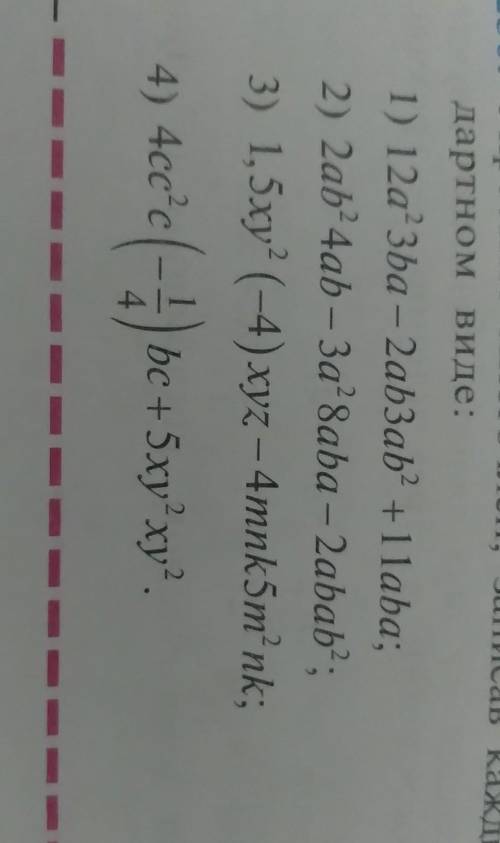 записав
дартном виде:
1) 12a²3ba – 2ab3ab² + 11aba;
2) 2ab²4ab – 3a²8aba – 2abab²;
3) 1,5xy² (–4) xyz – 4mnk5m²nk;
4) 4cc²c (–1/4) bc + 5xy²xy².